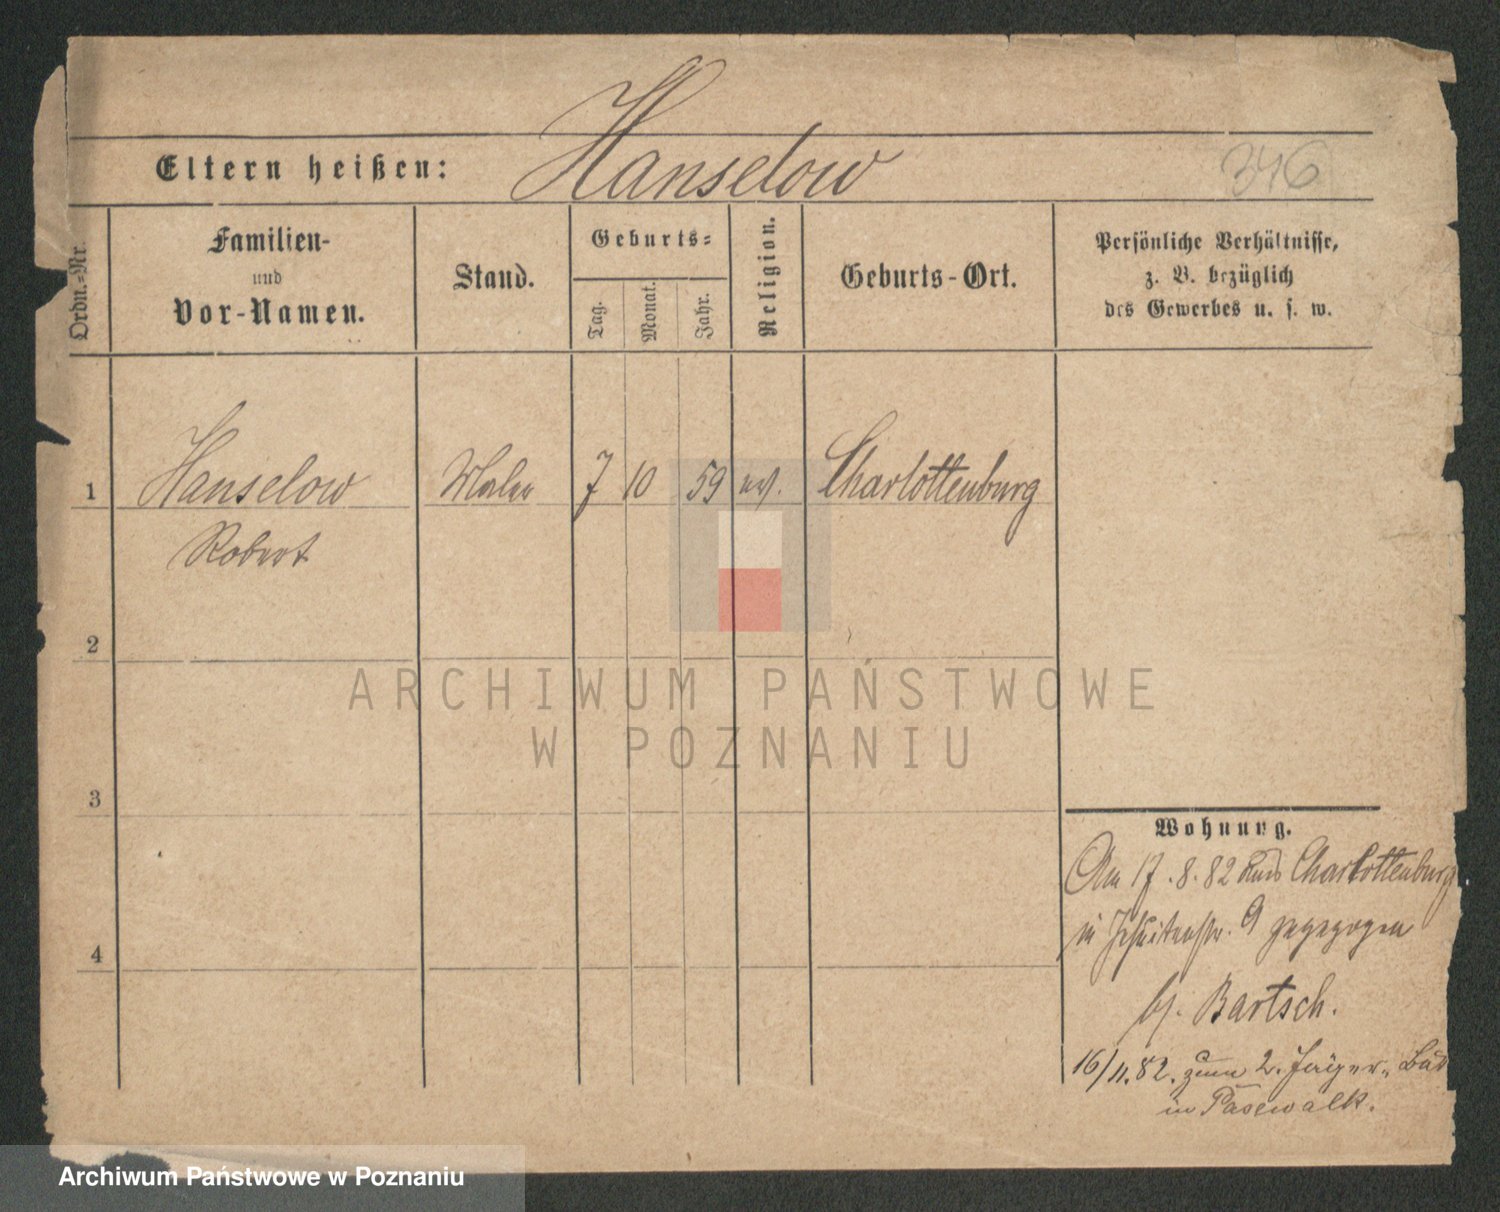 Hanselow
Eltern heißen:
346
Ordn.-Nr.
Familien-
und
Vor-Namen.
Stand.
Geburts-
Tag.
Monat.
Jahr.
Religion.
Geburts-Ort.
Persönliche Verhältnisse,
z. B. bezüglich
des Gewerbes u. s. w.
1 Hanselow Maler 7 10 59 ev. Charlottenburg
Robert
2
3
4
Wohnung.
Am 17.8.82 aus Charlottenburg
in Jesuitenstr. 9 gezogen
b/. Bartsch.
16/11.82. zum 2. Jäger-
in Pasewalk.
ARCHIWUM PAŃSTWOWE
W POZNANIU
Archiwum Państwowe w Poznaniu